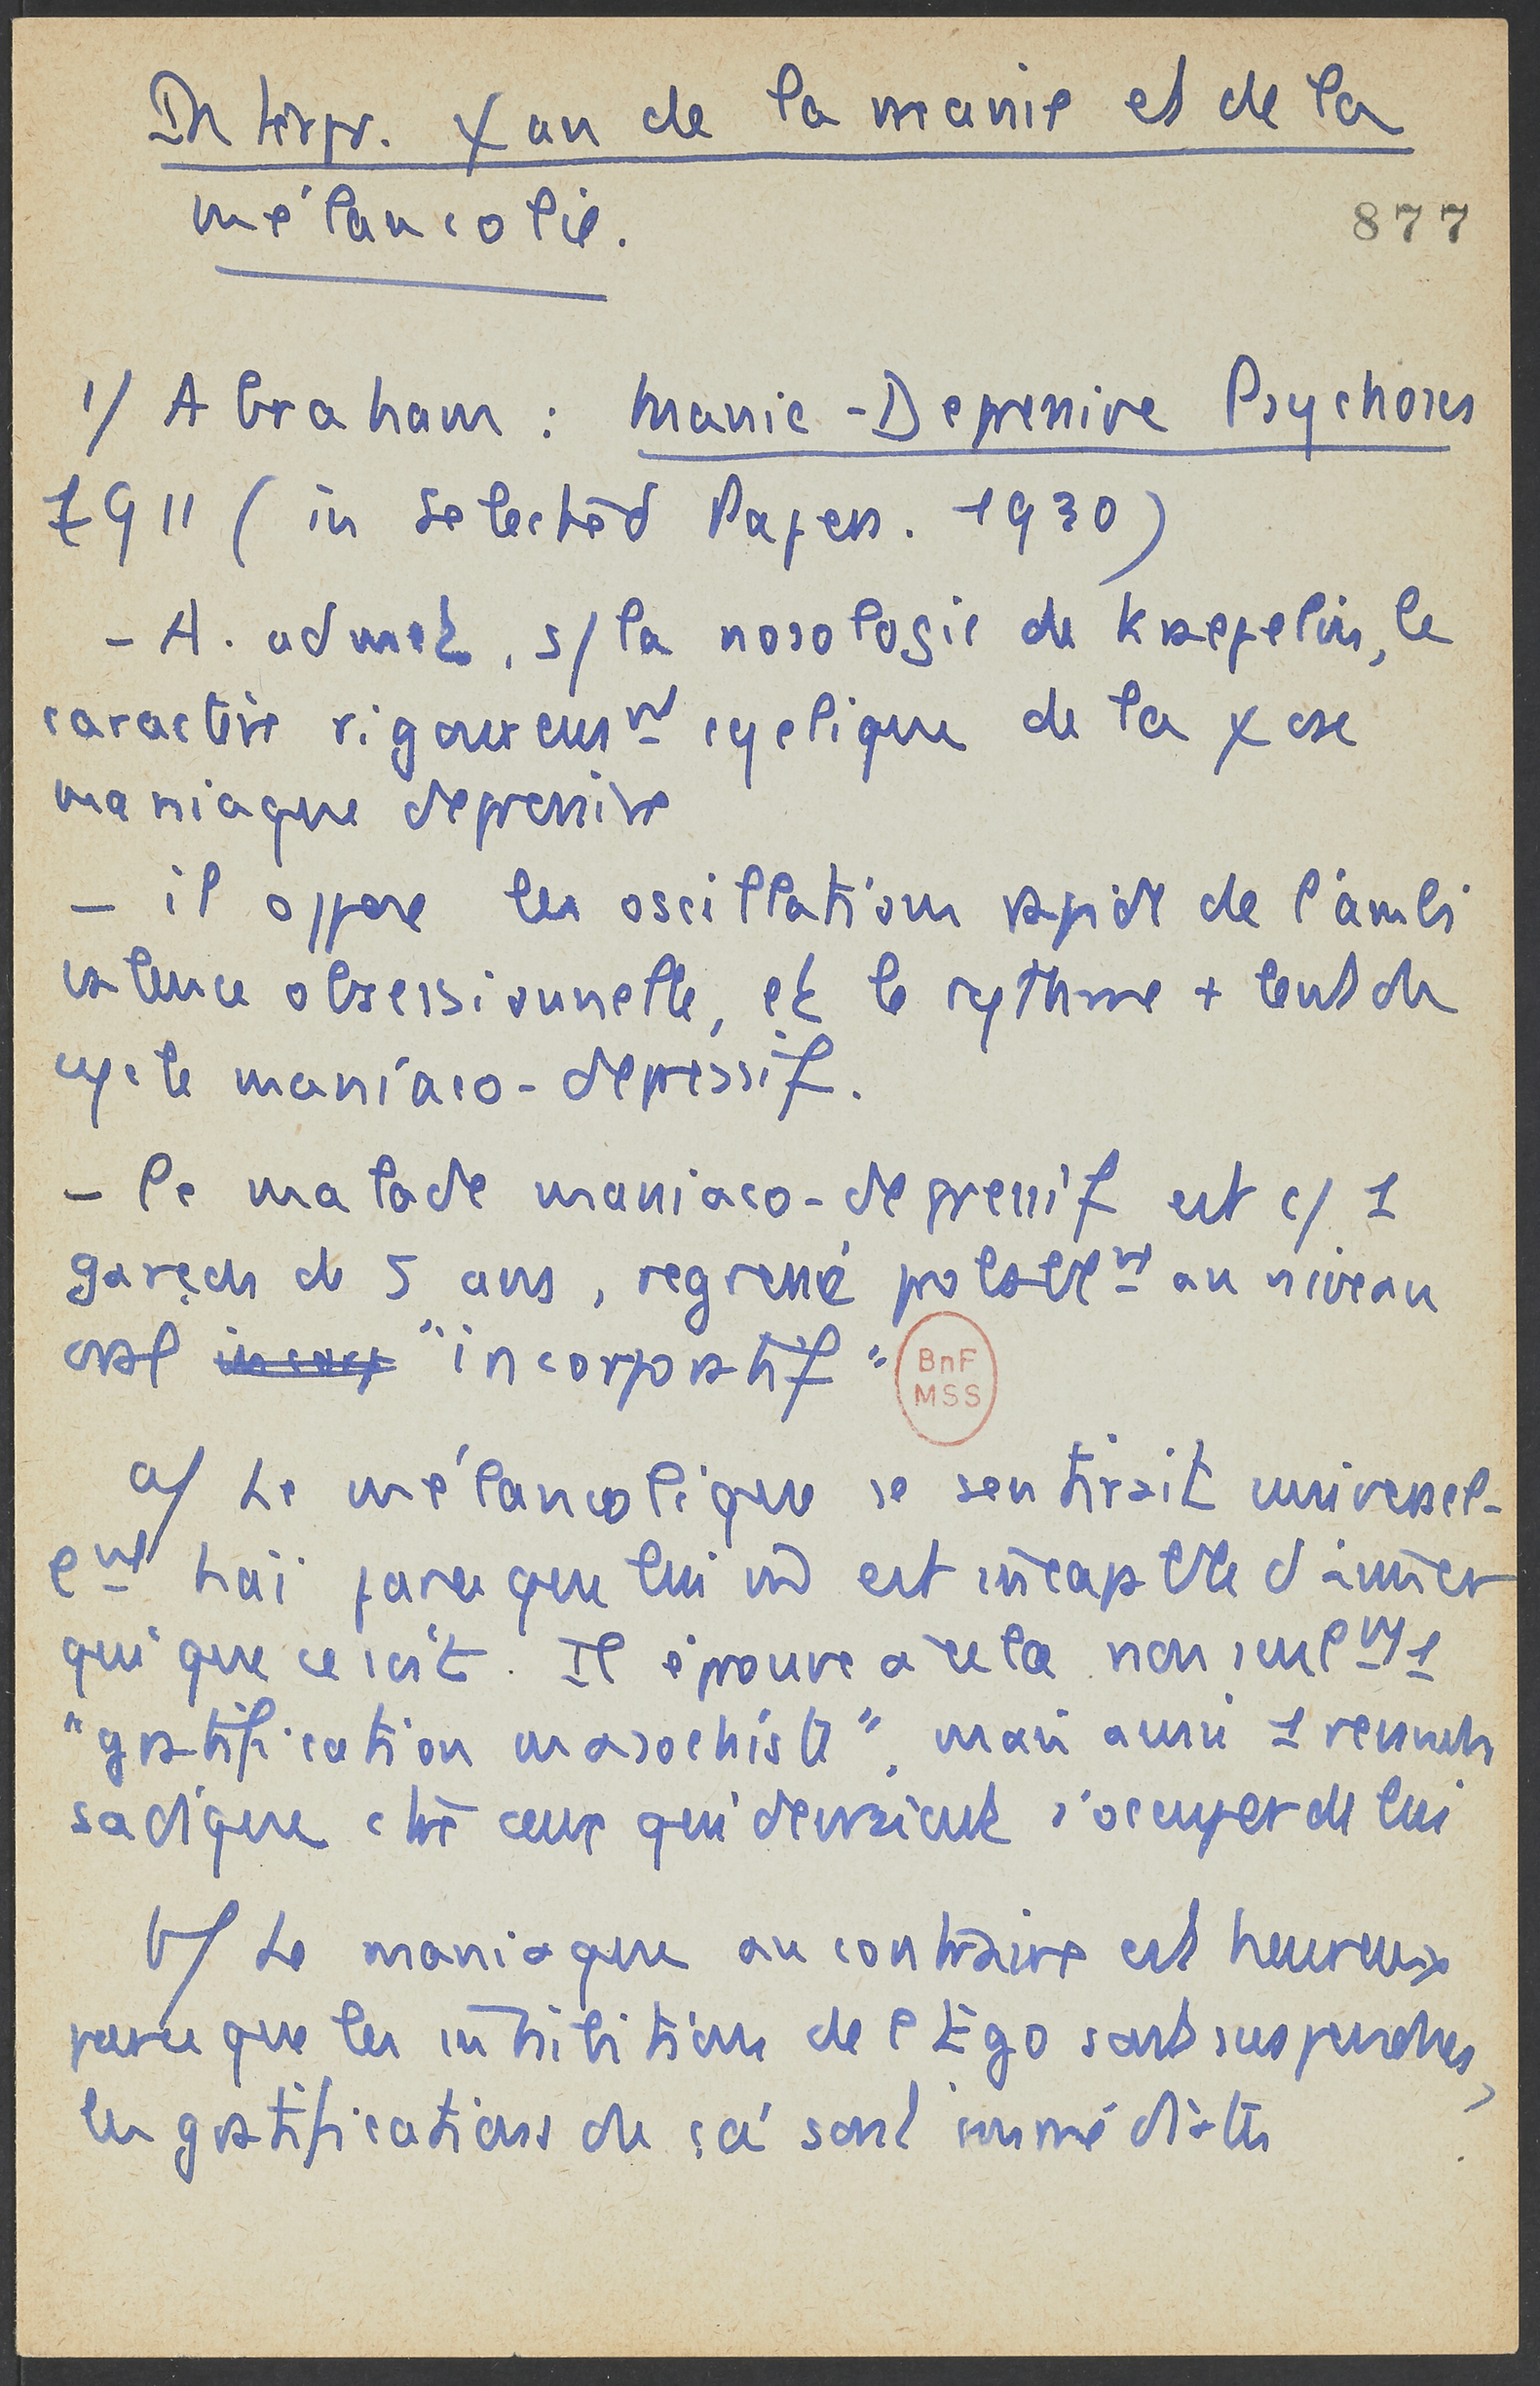 Interpr. χan de la manie et de la
mélancolie.
877
1/ Abraham : Manic-Depressive Psychoses
1911 (in Selected Papers. 1930)
- A. admet, s/ la nosologie de Kraepelin, le
caractère rigoureusmt cyclique de la χose
maniaque depressive
- il oppose les oscillations rapides de l'ambi
valence obsessionnelle, et le rythme + lent du
cycle maniaco-dépressif.
- le malade maniaco-depressif est c/ 1
garçon de 5 ans, regressé probablemt au niveau
oral incorp "incorporatif"
BnF
MSS
a/ Le mélancolique se sentirait universel-
emt haï parce que lui m̄ est incapable d'aimer
qui que ce soit. Il éprouve à cela non seulmt 1
"gratification masochiste", mais aussi 1 revanche
sadique ctre ceux qui devraient s'occuper de lui
b/ Le maniaque au contraire est heureux
parce que les inhibitions de l'Ego sont suspendues,
les gratifications du ça sont immédiates